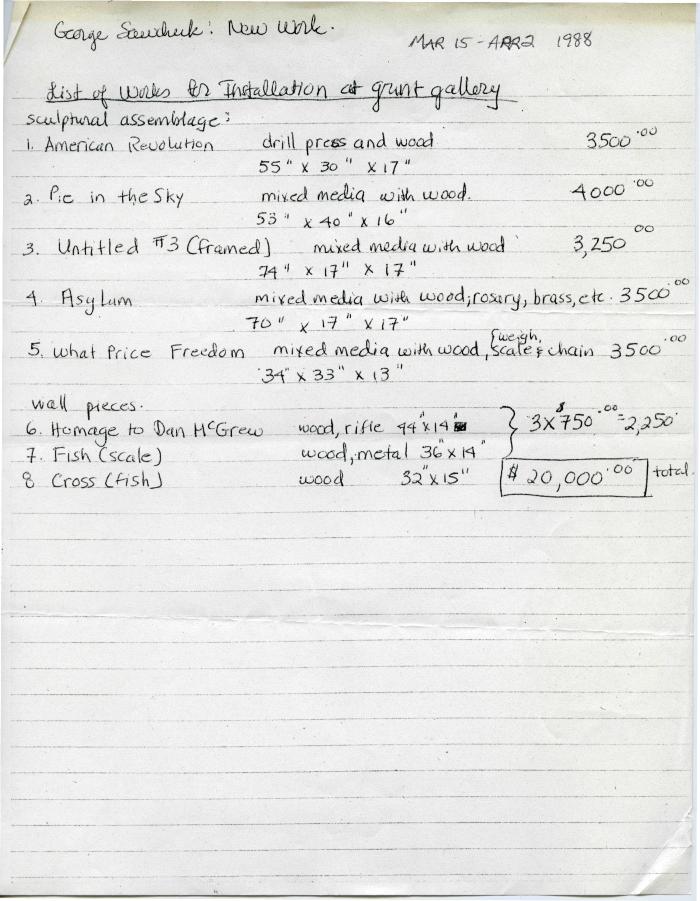 George Sawchuk: New Work.
MAR 15 - APR 2 1988
List of Works for Installation at grunt gallery
sculptural assemblage:
1. American Revolution drill press and wood 3500.00
55" x 30" x 17"
2. Pie in the Sky mixed media with wood. 4000.00
53" x 40" x 16"
3. Untitled #3 (framed) mixed media with wood 3,250 00
74" x 17" x 17"
4. Asylum mixed media with wood, rosary, brass, etc. 3500.00
70" x 17" x 17"
5. What Price Freedom mixed media with wood, {weigh, scale & chain 3500.00
34" x 33" x 13"
wall pieces.
6. Homage to Dan McGrew wood, rifle 44" x 14" } 3 x $750.00 = 2,250
7. Fish (scale) wood, metal 36" x 14"
8 Cross (fish) wood 32" x 15" $ 20,000.00 total